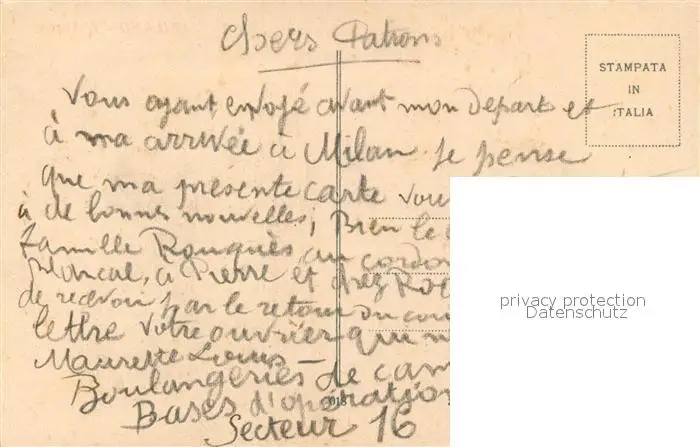 Chers Patrons
STAMPATA
IN
ITALIA
Vous ayant envoyé avant mon départ et
à ma arrivée à Milan je pense
que ma présente carte vou
à de bonnes nouvelles, Bien le
famille Rouquès au cordon
Pascal, à Pierre et chez Ro
de recevoir par le retour du cou
lettre votre ouvrier qui
Maurette Louis —
Boulangeries de cam
Bases d'opération
Secteur 16
privacy protection
Datenschutz